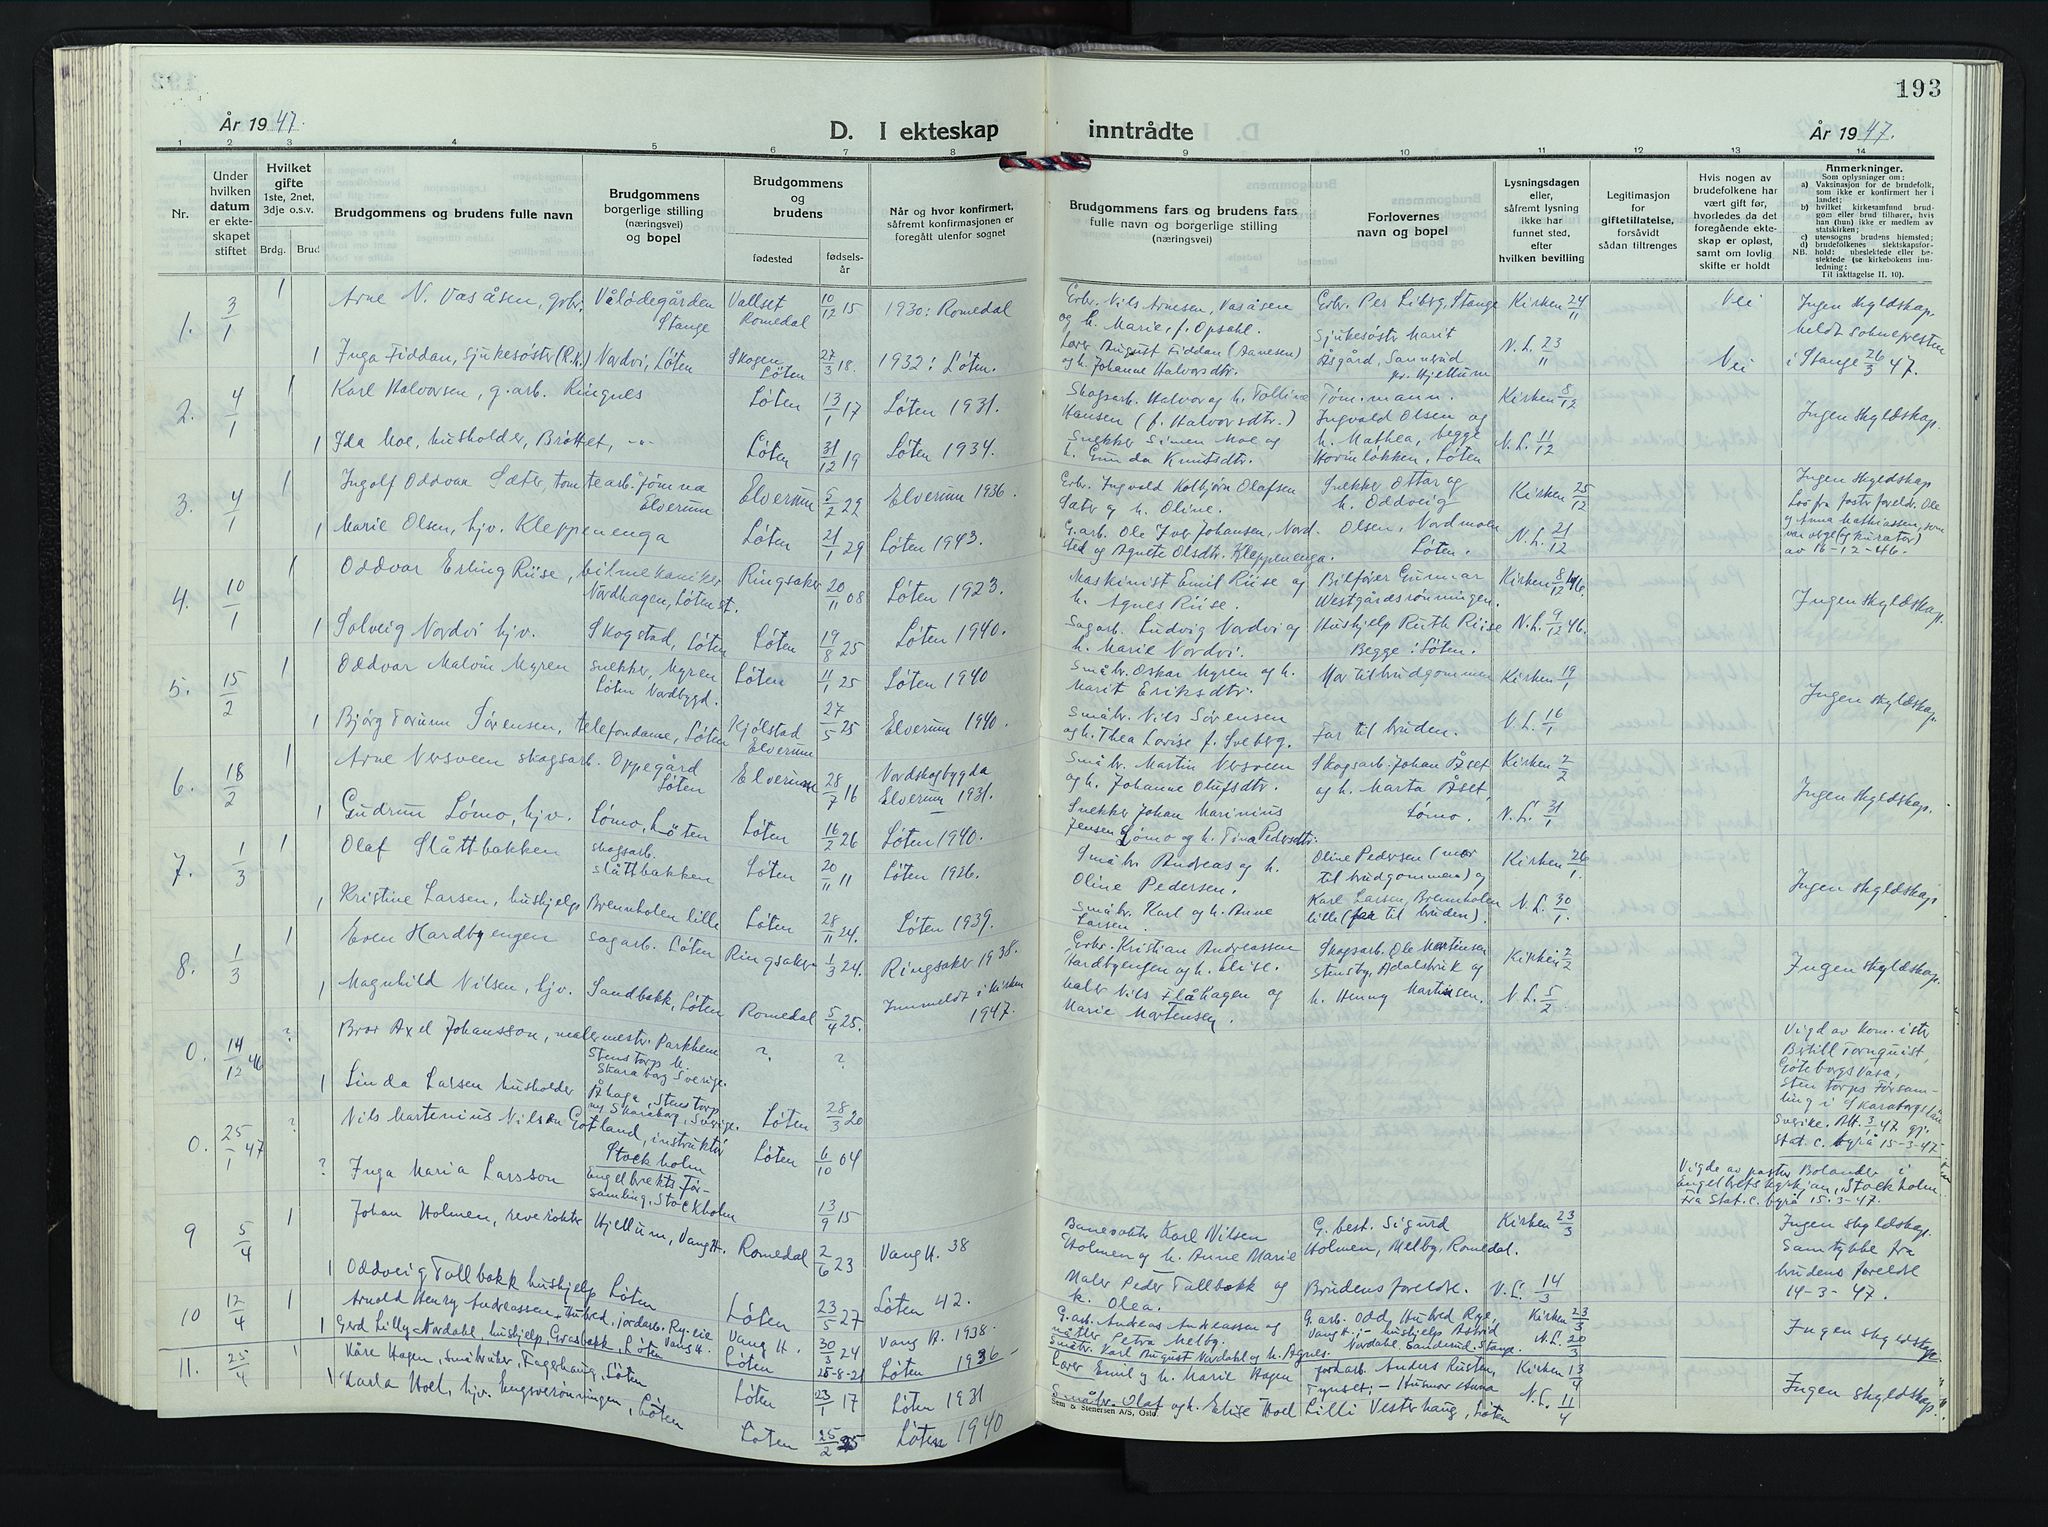 193
År 1947.
D. I ekteskap
inntrådte
År 1947.
1 2 3 4 5 6 7 8 9 10 11 12 13 14
Nr.
Under hvilken datum er ekteskapet stiftet
Hvilket gifte 1ste, 2net, 3dje o.s.v.
Brdg. Brud
Brudgommens og brudens fulle navn
Brudgommens borgerlige stilling (næringsvei) og bopel
Brudgommens og brudens
fødested
fødsels-år
Når og hvor konfirmert, såfremt konfirmasjonen er foregått utenfor sognet
Brudgommens fars og brudens fars fulle navn og borgerlige stilling (næringsvei)
Forlovernes navn og bopel
Lysningsdagen eller, såfremt lysning ikke har funnet sted, efter hvilken bevilling
Legitimasjon for giftetillatelse, forsåvidt sådan tiltrenges
Hvis nogen av brudefolkene har vært gift før, hvorledes da det foregående ekteskap er opløst, samt om lovlig skifte er holdt
Anmerkninger.
Som oplysninger om:
a) Vaksinasjon for de brudefolk, som ikke er konfirmert her i landet;
b) hvilket kirkesamfund brudgom eller brud tilhører, hvis han (hun) ikke er medlem av statskirken;
c) utensogns brudens hjemsted;
d) brudefolkenes slektskapsforhold: ubeslektede eller beslektede (se kirkebokens innledning:
NB.
Til iaktagelse II. 10).
1. 3/1 1 Arne N. Vasåsen, grbr. Vålødegården Stange Vallset Romedal 10/12 15 1930: Romedal
Grbr. Nils Arnesen, Vasåsen og h. Marie, f. Opsahl. Grbr. Per Libsg, Stange Kirken 24/11 Nei Ingen skyldskap.
1 Inga Fiddan, sjukesøster (R.K.) Nordvi, Løten Skogen Løten 27/3 18. 1932: Løten.
Lærer August Fiddan (Aanesen) og h. Johanne Halvorsdtr. Sjukesøstr Marit Åsgård, Sannerud pr. Hjellum N.L. 23/11 Nei meldt soknepresten i Stange 26/3 47.
2. 4/1 1 Karl Halvorsen, g.arb. Ringnes Løten 13/1 17 Løten 1931.
Skogsarb. Halvor og h. Talline Hansen (f. Halvorsdtr.) Tømmermann. Ingvald Olsen og Kirken 8/12 Ingen skyldskap.
1 Ida Moe, husholder, Bråttet, -"- Løten 31/12 19 Løten 1934.
Snekker Simen Moe og h. Gunda Knutsdtr. h. Mathea, begge Hornløkken, Løten N.L. 11/12
3. 4/1 1 Ingolf Oddvar Sæter, tomtearb. Jømna Elverum Elverum 5/2 22 Elverum 1936.
Grbr. Ingvald Kolbjørn Olafsen Sæter og h. Oline. Snekker Ottar og h. Oddveig Kirken 25/12 Ingen skyldskap
1 Marie Olsen, hjv. Kleppenenga Løten 21/1 29 Løten 1943.
G.arb. Ole Iver Johansen, Nordsted og Agnete Olsdtr. Kleppenenga. Olsen, Nordmoen Løten. N.L. 21/12 Lov fra foster foreldr. Ole og Anna Mathiassen, som var verge (og kurator) av 16-12-46.
4. 10/1 1 Oddvar Erling Riise, bilmekaniker Nordhagen, Løten st. Ringsaker 20/11 08 Løten 1923.
Maskinist Emil Riise og h. Agnes Riise. Bilfører Gunnar Westgårdsrønningen. Kirken 8/12 46. Ingen skyldskap.
1 Solveig Nordvi hjv. Skogstad, Løten Løten 19/8 25 Løten 1940.
Sagarb. Ludvig Nordvi og h. Marie Nordvi. Hushjelp Ruth Riise Begge i Løten. N.L. 9/12 46.
5. 15/2 1 Oddvar Malvin Myren snekker, Myren Løten Nordbygd. Løten 11/1 25 Løten 1940
Småbr. Oskar Myren og h. Marit Eriksdtr. Mor til brudgommen Kirken 19/1 Ingen skyldskap.
1 Bjørg Torunn Sørensen, telefondame, Løten Kjølstad Elverum 27/5 25 Elverum 1940.
Småbr. Nils Sørensen og h. Thea Lovise f. Sveberg. Far til bruden. N.L. 16/1
6. 18/2 1 Arne Nersveen skogsarb. Oppegård Løten Elverum 28/7 16 Nordskogbygda Elverum 1931.
Småbr. Martin Nersveen og h. Johanne Olufsdtr. Skogsarb. Johan Åset og h. Marta Åset, Lømo. Kirken 2/2 Ingen skyldskap.
1 Gudrun Lømo, hjv. Lømo, Løten Løten 16/2 26 Løten 1940.
Snekker Johan Marinius Jensen Lømo og h. Tina Pedersdtr. N.L. 31/1
7. 1/3 1 Olaf Slåttbakken skogsarb. Slåttbakken Løten 20/11 11 Løten 1926.
Småbr. Andreas og h. Oline Pedersen. Oline Pedersen (mor til brudgommen) og Kirken 26/1. Ingen skyldskap
1 Kristine Larsen, hushjelp Brennholen lille Løten 28/11 24. Løten 1939.
Småbr. Karl og h. Anne Larsen. Karl Larsen, Brennholen lille (far til bruden). N.L. 30/1.
8. 1/3 1 Even Hardbyengen sagarb. Løten Ringsaker 1/3 24. Ringsaker 1938.
Grbr. Kristian Andreassen Hardbyengen og h. Elise. Skogsarb. Ole Martensen Stensby, Adalsbruk og Kirken 2/2 Ingen skyldskap.
1 Magnhild Nilsen, hjv. Sandbakk, Løten Romedal 5/4 25. Innmeldt i kirken 1947.
Maler Nils Flåhagen og Marie Mortensen. h. Henny Martinsen. N.L. 5/2
0. 14/12 46 ? Bror Axel Johansson, malermestr. Parkhem Stenstorp h. Skaraborg Sverige. ? ?
Vigd av kom.istr Bertill Tornquist, Göteborgs Vasa, Stentorps Forsamling i Skaraborgs län Sverige. Att. 3/1 47 gj. Stat. c. byrå 15-3-47.
1 Linda Larsen husholder Åhaga, Stenstorp Skaraborg, Sverige. Løten 28/3 20
0. 25/1 47 ? Nils Martenius Nilsen Gotland, instruktør Stockholm Løten 6/10 04
? Inga Maria Larsson Engelbrekts Församling, Stockholm 13/9 15
Vigde av pastor Bolander i Engelbrekts kyrkjan, Stockholm Fra Stat. c. byrå 15-3-47.
9 5/4 1 Johan Holmen, reverøkter Hjellum, Vang H. Romedal 2/6 23 Vang H. 38
Banevokter Karl Nilsen Holmen og h. Anne Marie G. best. Sigurd Holmen, Melby, Romedal. Kirken 23/3 Ingen skyldskap. Samtykke fra brudens foreldre 14-3-47.
1 Oddveig Tallbakk hushjelp Løten Løten 23/5 27 Løten 42.
Maler Peder Tallbakk og h. Olea. Brudens foreldre. N.L. 14/3
10 12/4 1 Arnold Henry Andreassen Husred, jordarb. Rygeie Vang H. Vang H. 30/3 24 Vang H. 1938.
G.arb. Andreas Andreassen og Petra Melby. G.arb. Odd Husred Rye, Vang H. - hushjelp Astrid Kirken 23/3 Ingen skyldskap
1 Gerd Lilly Nordahl, hushjelp, Grasbakk, Løten Løten 25-8-21 Løten 1936
Småbr. Karl August Nordahl og h. Agnes. Nordahl, Sanderud, Stange N.L. 20/3
11. 25/4 1 Kåre Hagen, småbruker, Fagerhaug, Løten Løten 23/1 17 Løten 1931
Lærer Emil og h. Marie Hagen jordarb. Anders Rusten, Tynset, - Husmor Anna Kirken 13/4 Ingen skyldskap.
1 Karla Hoel, hjv. Engsverønningen, Løten Løten 25/2 25 Løten 1940
Småbr. Olaf og h. Elise Hoel Lilli Vesterhaug, Løten N.L. 11/4
Sem & Stenersen A/S, Oslo.